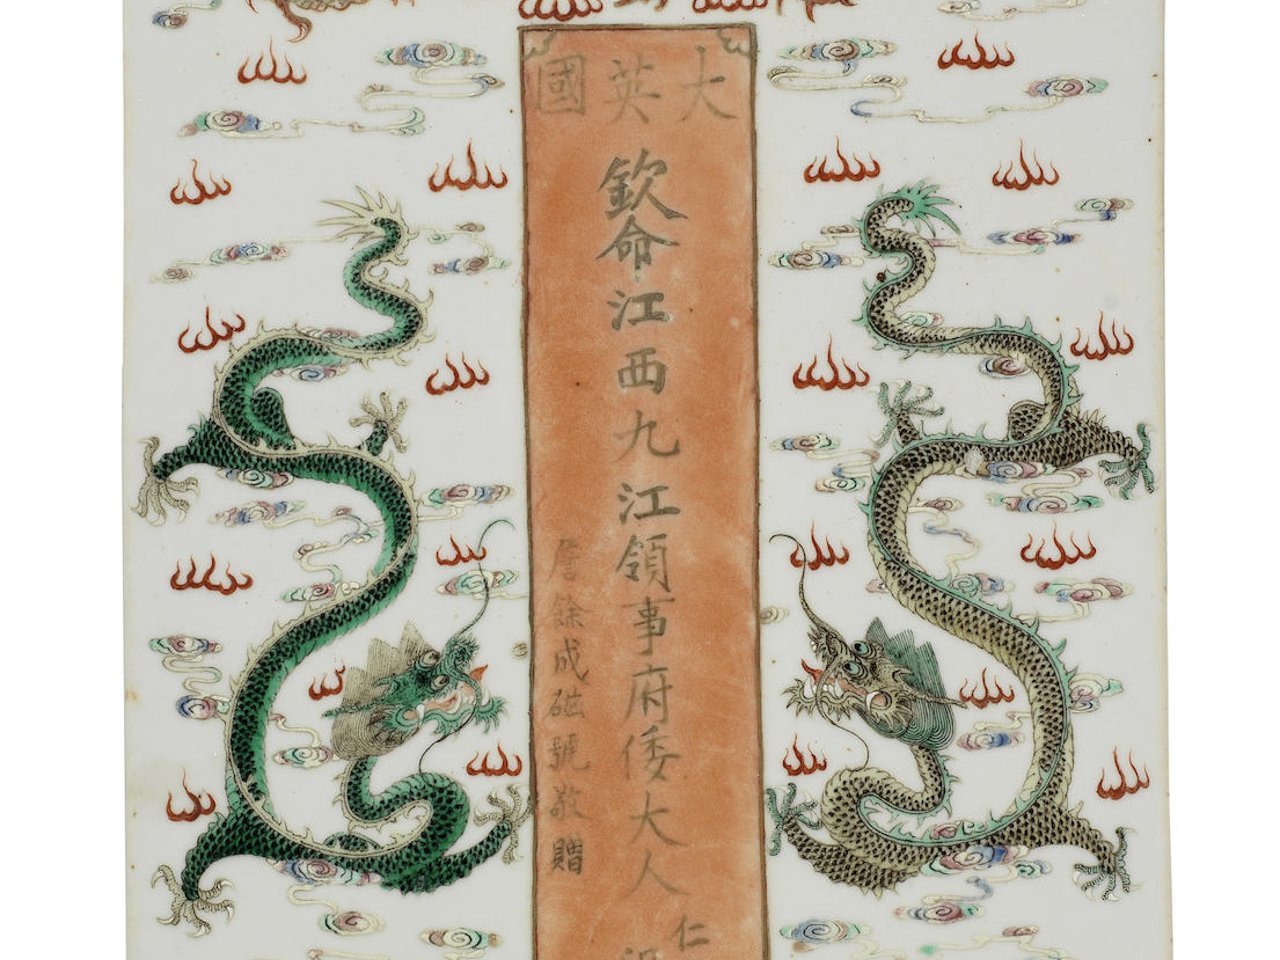 大英國
欽命江西九江領事府倭大人
仁
詹餘成磁號敬贈